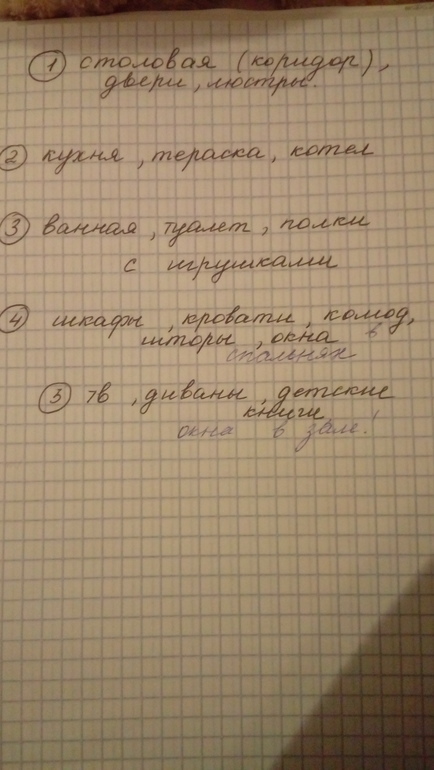 ① столовая (коридор),
двери, люстры.
② кухня, тераска, котел
③ ванная, туалет, полки
с игрушками
④ шкафы, кровати, комод,
шторы, окна в
спальнях
⑤ тв, диваны, детские
книги
окна в зале!